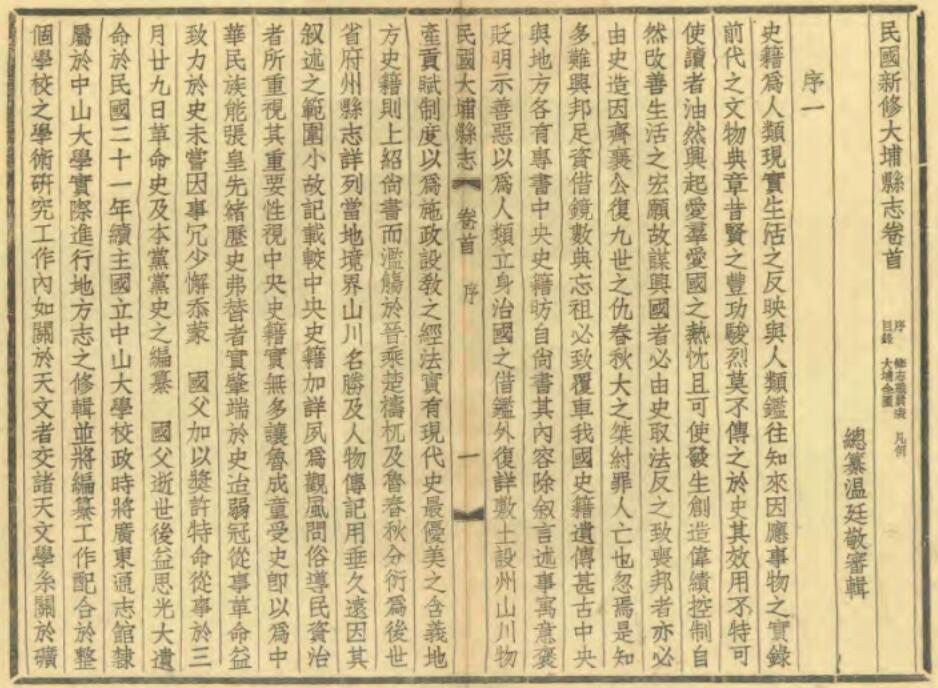 民國新修大埔縣志卷首
序 修志職員表 凡例
目錄 大埔全圖
總纂温廷敬審輯
序一
史籍爲人類現實生活之反映與人類鑑往知來因應事物之實錄
前代之文物典章昔賢之豐功駿烈莫不傳之於史其效用不特可
使讀者油然興起愛羣愛國之熱忱且可使發生創造偉績控制自
然改善生活之宏願故謀興國者必由史取法反之致喪邦者亦必
由史造因齊襄公復九世之仇春秋大之桀紂罪人亡也忽焉是知
多難興邦足資借鏡數典忘祖必致覆車我國史籍遺傳甚古中央
與地方各有專書中央史籍昉自尙書其內容除叙言述事寓意褒
貶明示善惡以爲人類立身治國之借鑑外復詳敷土設州山川物
民國大埔縣志 卷首 序 一
產貢賦制度以爲施政設敎之經法實有現代史最優美之含義地
方史籍則上紹尙書而濫觴於晉乘楚檮杌及魯春秋分衍爲後世
省府州縣志詳列當地境界山川名勝及人物傳記用垂久遠因其
叙述之範圍小故記載較中央史籍加詳夙爲觀風問俗導民資治
者所重視其重要性視中央史籍實無多讓魯成童受史卽以爲中
華民族能張皇先緒歷史弗替者實肇端於史迨弱冠從事革命益
致力於史未嘗因事冗少懈忝蒙 國父加以獎許特命從事於三
月廿九日革命史及本黨黨史之編纂 國父逝世後益思光大遺
命於民國二十一年續主國立中山大學校政時將廣東通志館隸
屬於中山大學實際進行地方志之修輯並將編纂工作配合於整
個學校之學術硏究工作內如關於天文者交諸天文學系關於礦